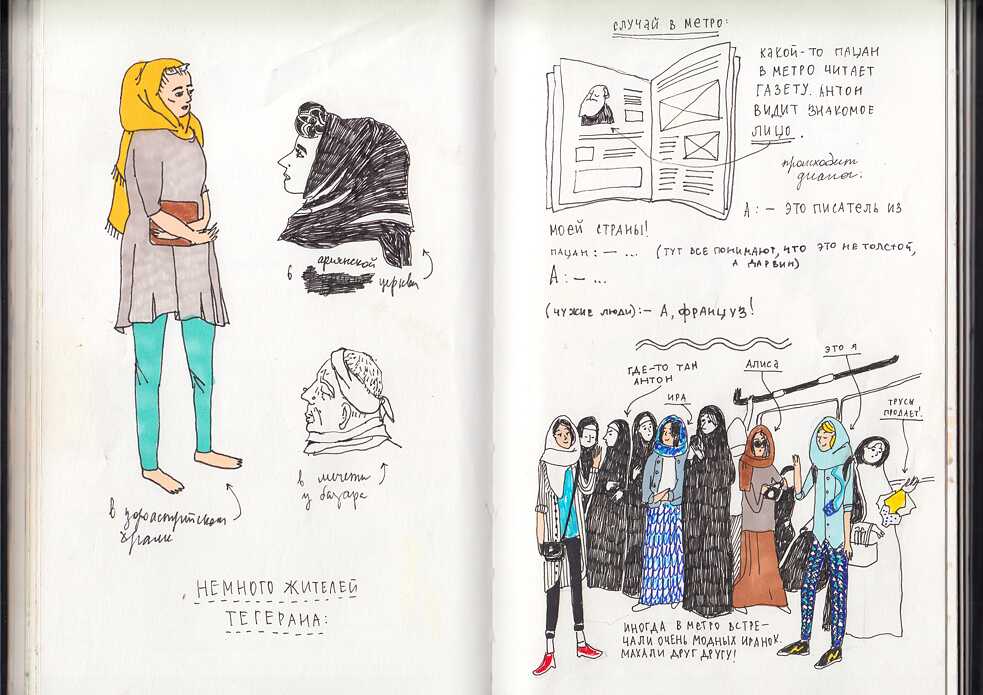 в
армянской
церкви
в мечети
у базара
в зороастрийском
храме
НЕМНОГО ЖИТЕЛЕЙ
ТЕГЕРАНА:
СЛУЧАЙ В МЕТРО:
КАКОЙ-ТО ПАЦАН
В МЕТРО ЧИТАЕТ
ГАЗЕТУ. АНТОН
ВИДИТ ЗНАКОМОЕ
ЛИЦО.
происходит
диалог:
А: – ЭТО ПИСАТЕЛЬ ИЗ
МОЕЙ СТРАНЫ!
ПАЦАН: – ... (ТУТ ВСЕ ПОНИМАЮТ, ЧТО ЭТО НЕ ТОЛСТОЙ,
А ДАРВИН)
А: – ...
(ЧУЖИЕ ЛЮДИ): – А, ФРАНЦУЗ!
ГДЕ-ТО ТАМ
АНТОН
ИРА
АЛИСА
ЭТО Я
ТРУСЫ
ПРОДАЕТ!
ИНОГДА В МЕТРО ВСТРЕ-
ЧАЛИ ОЧЕНЬ МОДНЫХ ИРАНОК.
МАХАЛИ ДРУГ ДРУГУ!